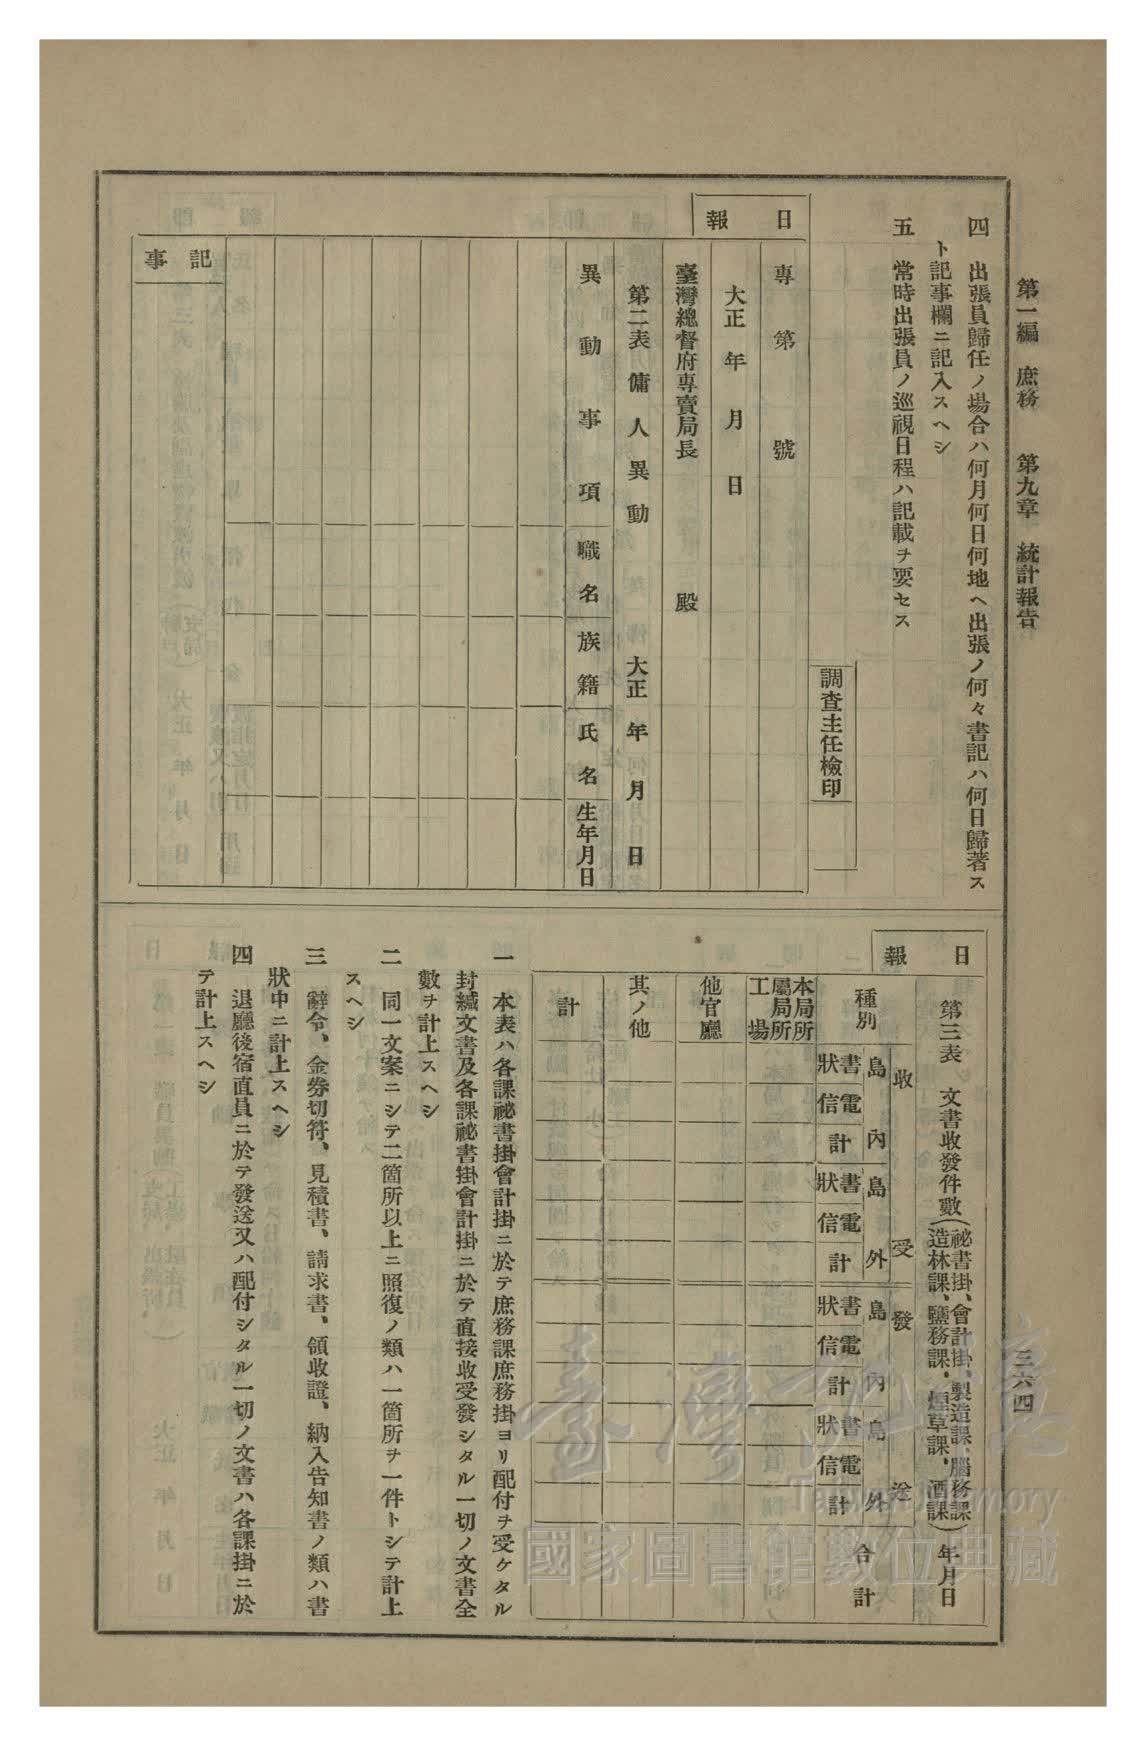 第一編　庶務　　第九章　統計報告
三六四
四　出張員歸任ノ場合ハ何月何日何地ヘ出張ノ何々書記ハ何日歸著ス
ト記事欄ニ記入スヘシ
五　常時出張員ノ巡視日程ハ記載ヲ要セス
調査主任檢印
日報
專第　號
大正　年　月　日
臺灣總督府專賣局長　　殿
第二表　傭人異動　　大正　年　月　日
異動事項　職名　族籍　氏名　生年月日
記事
日報
第三表　文書收發件數（祕書掛、會計掛、製造課、腦務課
造林課、鹽務課、煙草課、酒課）年月日
種別　收受　發送
島內　島外　島內　島外　合計
書狀　電信　計　書狀　電信　計　書狀　電信　計　書狀　電信　計
本局所
屬局所
工場
他官廳
其ノ他
計
一　本表ハ各課祕書掛會計掛ニ於テ庶務課庶務掛ヨリ配付ヲ受ケタル
封緘文書及各課祕書掛會計掛ニ於テ直接收受發シタル一切ノ文書全
數ヲ計上スヘシ
二　同一文案ニシテ二箇所以上ニ照復ノ類ハ一箇所ヲ一件トシテ計上
スヘシ
三　辭令、金券切符、見積書、請求書、領收證、納入告知書ノ類ハ書
狀中ニ計上スヘシ
四　退廳後宿直員ニ於テ發送又ハ配付シタル一切ノ文書ハ各課掛ニ於
テ計上スヘシ
臺灣記憶
Taiwan Memory
國家圖書館數位典藏